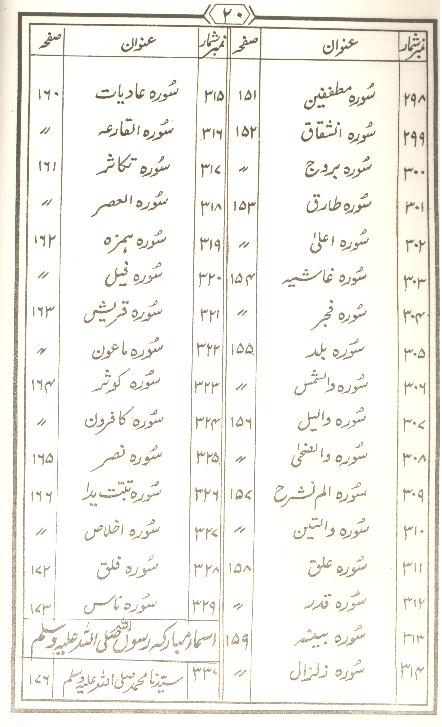 ۲۰
نمبرشمار عنوان صفحہ نمبرشمار عنوان صفحہ
۲۹۸ سُورہ مطففین ۱۵۱ ۳۱۵ سُورہ عادیات ۱۶۰
۲۹۹ سُورہ انشقاق ۱۵۲ ۳۱۶ سُورہ القارعہ 〃
۳۰۰ سُورہ بروج 〃 ۳۱۷ سُورہ تکاثر ۱۶۱
۳۰۱ سُورہ طارق ۱۵۳ ۳۱۸ سُورہ العصر 〃
۳۰۲ سُورہ اعلیٰ 〃 ۳۱۹ سُورہ ہمزہ ۱۶۲
۳۰۳ سُورہ غاشیہ ۱۵۴ ۳۲۰ سُورہ فیل 〃
۳۰۴ سُورہ فجر 〃 ۳۲۱ سُورہ قریش ۱۶۳
۳۰۵ سُورہ بلد ۱۵۵ ۳۲۲ سُورہ ماعون 〃
۳۰۶ سُورہ والشمس 〃 ۳۲۳ سُورہ کوثر ۱۶۴
۳۰۷ سُورہ والیل ۱۵۶ ۳۲۴ سُورہ کافرون 〃
۳۰۸ سُورہ والضحیٰ 〃 ۳۲۵ سُورہ نصر ۱۶۵
۳۰۹ سُورہ الم نشرح ۱۵۷ ۳۲۶ سُورہ تبّت یدا ۱۶۶
۳۱۰ سُورہ والتین 〃 ۳۲۷ سُورہ اخلاص 〃
۳۱۱ سُورہ علق ۱۵۸ ۳۲۸ سُورہ فلق ۱۷۲
۳۱۲ سُورہ قدر 〃 ۳۲۹ سُورہ ناس ۱۷۳
۳۱۳ سُورہ بینہ ۱۵۹ اسماء مبارکہ رسول اللہ صلی اللہ علیہ وسلم
۳۱۴ سُورہ زلزال 〃 ۳۳۰ سیّدنا محمد صلی اللہ علیہ وسلم ۱۷۶